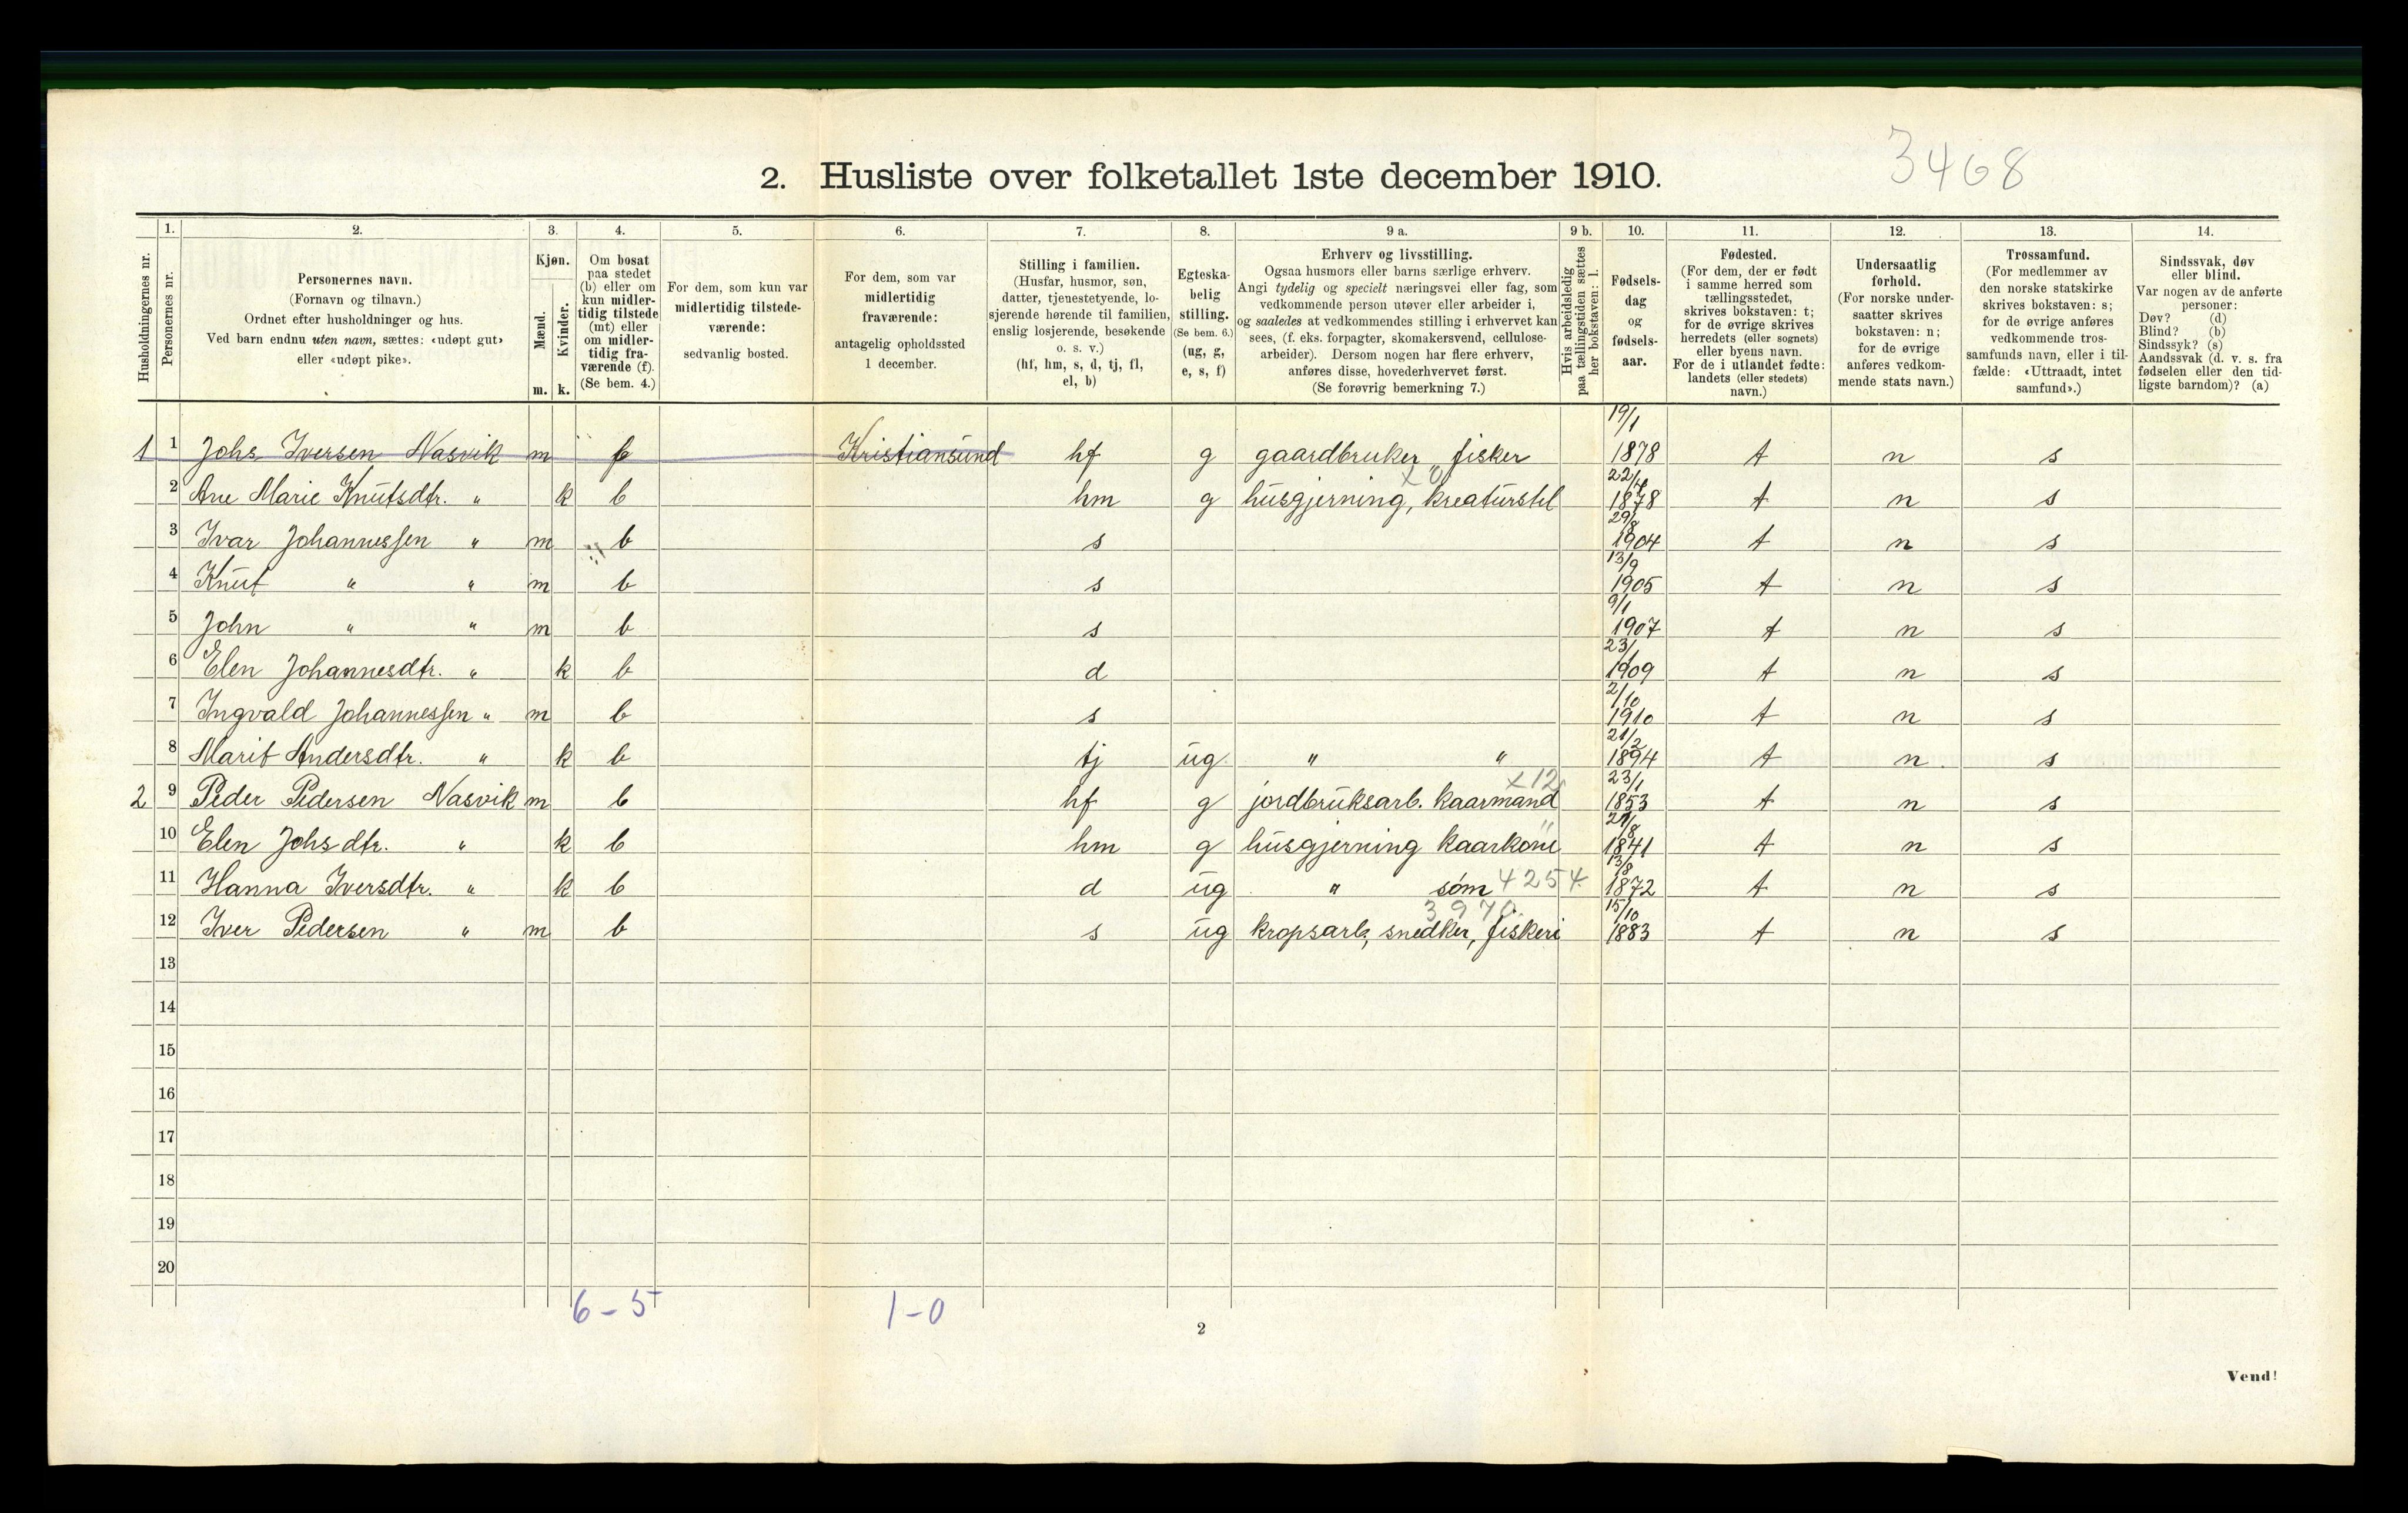 3468
2. Husliste over folketallet 1ste december 1910.
Husholdningernes nr.
1.
Personernes nr.
2.
Personernes navn.
(Fornavn og tilnavn.)
Ordnet efter husholdninger og hus.
Ved barn endnu uten navn, sættes: «udøpt gut»
eller «udøpt pike».
3.
Kjøn.
Mænd.
m.
Kvinder.
k.
4.
Om bosat
paa stedet
(b) eller om
kun midler-
tidig tilstede
(mt) eller
om midler-
tidig fra-
værende (f).
(Se bem. 4.)
5.
For dem, som kun var
midlertidig tilstede-
værende:
sedvanlig bosted.
6.
For dem, som var
midlertidig
fraværende:
antagelig opholdssted
1 december.
7.
Stilling i familien.
(Husfar, husmor, søn,
datter, tjenestetyende, lo-
sjerende hørende til familien,
enslig losjerende, besøkende
o. s. v.)
(hf, hm, s, d, tj, fl,
el, b)
8.
Egteska-
belig
stilling.
(Se bem. 6.)
(ug, g,
e, s, f)
9 a.
Erhverv og livsstilling.
Ogsaa husmors eller barns særlige erhverv.
Angi tydelig og specielt næringsvei eller fag, som
vedkommende person utøver eller arbeider i,
og saaledes at vedkommendes stilling i erhvervet kan
sees, (f. eks. forpagter, skomakersvend, cellulose-
arbeider). Dersom nogen har flere erhverv,
anføres disse, hovederhvervet først.
(Se forøvrig bemerkning 7.)
9 b.
Hvis arbeidsledig
paa tællingstiden sættes
her bokstaven: l.
10.
Fødsels-
dag
og
fødsels-
aar.
11.
Fødested.
(For dem, der er født
i samme herred som
tællingsstedet,
skrives bokstaven: t;
for de øvrige skrives
herredets (eller sognets)
eller byens navn.
For de i utlandet fødte:
landets (eller stedets)
navn.)
12.
Undersaatlig
forhold.
(For norske under-
saatter skrives
bokstaven: n;
for de øvrige
anføres vedkom-
mende stats navn.)
13.
Trossamfund.
(For medlemmer av
den norske statskirke
skrives bokstaven: s;
for de øvrige anføres
vedkommende tros-
samfunds navn, eller i til-
fælde: «Uttraadt, intet
samfund».)
14.
Sindssvak, døv
eller blind.
Var nogen av de anførte
personer:
Døv? (d)
Blind? (b)
Sindssyk? (s)
Aandssvak (d. v. s. fra
fødselen eller den tid-
ligste barndom)? (a)
1 1 Johs Iversen Nasvik m Kristiansund hf g gaardbruker fisker 19/1 1878 t n s
2 Ane Marie Knutsdtr. " k b hm g husgjerning, kreaturstel 1878 t n s
3 Ivar Johannessen " m b s 29/8 1904 t n s
4 Knut " " m b s 13/9 1905 t n s
5 John " " m b s 9/1 1907 t n s
6 Elen Johannesdtr. " k b d 23/1 1909 t n s
7 Ingvald Johannessen " m b s 2/10 1910 t n s
8 Marit Andersdtr. " k b tj ug " " 21/2 1894 t n s
x 12
2 9 Peder Pedersen Nasvik m b hf g jordbruksarb. kaarmand 23/1 1853 t n s
10 Elen Johsdtr. " k b hm g husgjerning kaarkone 1841 t n s
11 Hanna Iversdtr. " k b d ug " søm 4254 13/8 1872 t n s
3970
12 Iver Pedersen " m b s ug kropsarb, snedker, fiskeri 15/10 1883 t n s
13
14
15
16
17
18
19
20
6-5 1-0
2
Vend!